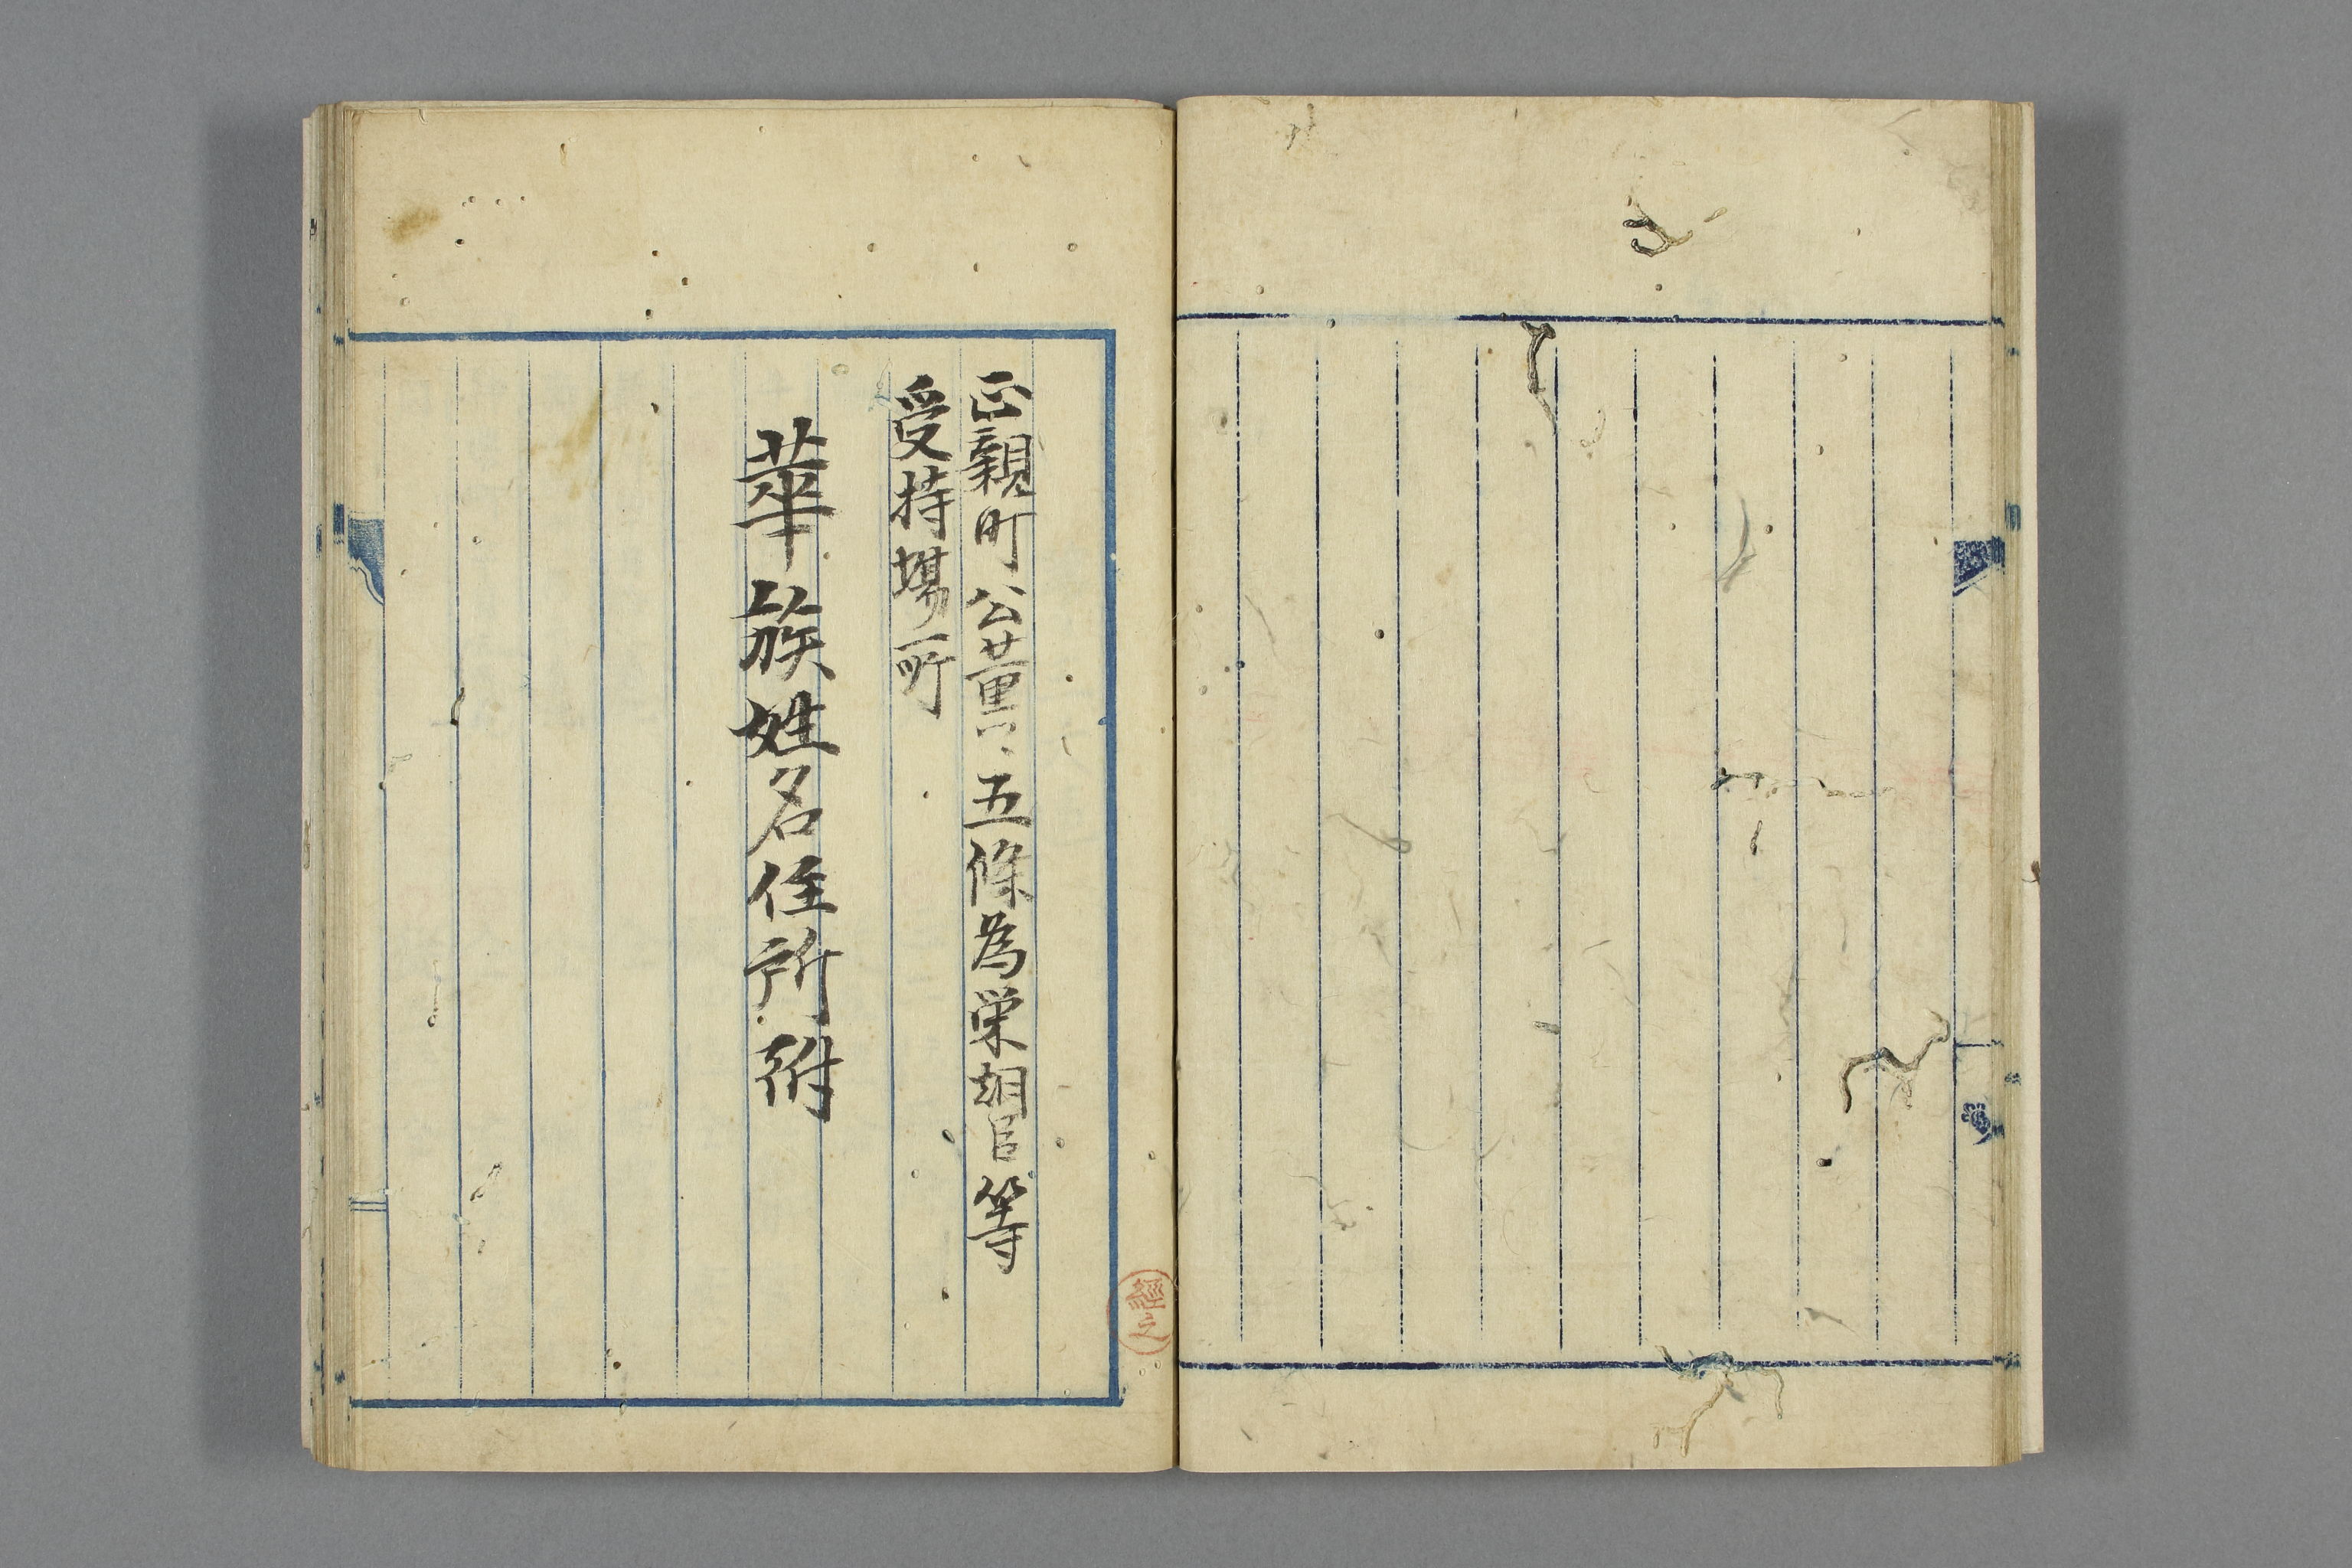 正親町公薫五條為栄朝臣等
受持場所
華族姓名住所附
經之